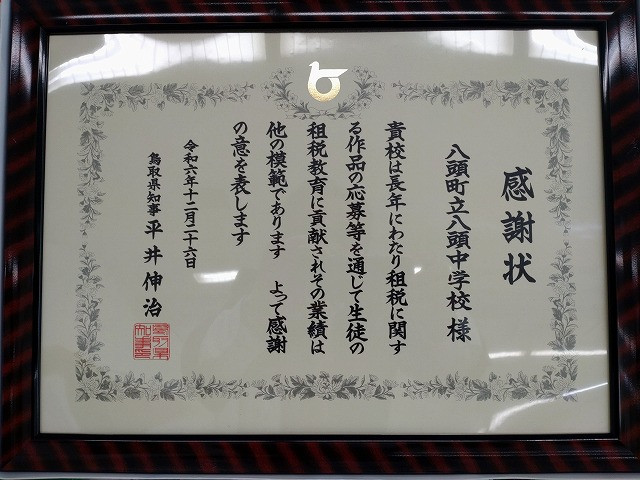 感謝状
八頭町立八頭中学校 様
貴校は長年にわたり租税に関す
る作品の応募等を通じて生徒の
租税教育に貢献されその業績は
他の模範であります　よって感謝
の意を表します
令和六年十二月二十六日
鳥取県知事 平井伸治